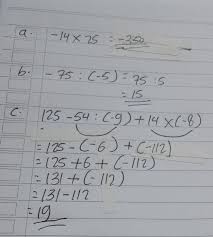 a. -14 x 25 = -350
b. -75 : (-5) = 75 : 5
= 15
c. 125 - 54 : (-9) + 14 x (-8)
= 125 - (-6) + (-112)
= 125 + 6 + (-112)
= 131 + (-112)
= 131 - 112
= 19